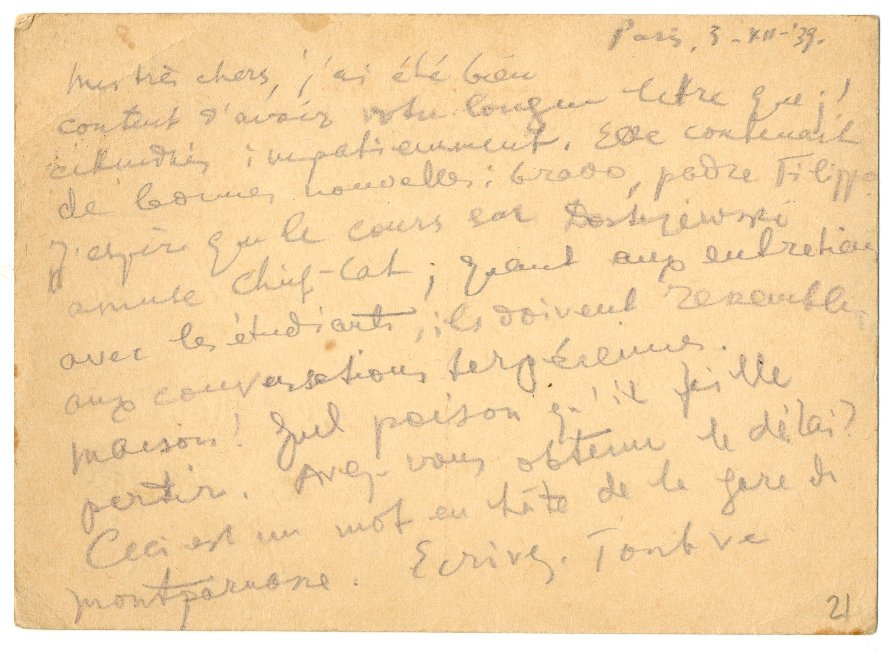 Paris, 3-XII-'39.
Mes très chers, j'ai été bien
content d'avoir votre longue lettre que j'
attendais impatiemment. Elle contenait
de bonnes nouvelles: bravo, padre Filippo.
J'espère que le cours sur Dostojewski
amuse ; quant aux entretiens
avec les étudiants, ils doivent ressembler
aux conversations
maison! Quel poison qu'il faille
partir. Avez-vous obtenu le délai?
Ceci est un mot en hâte de la gare de
Montparnasse. Ecrivez. Tout va
21